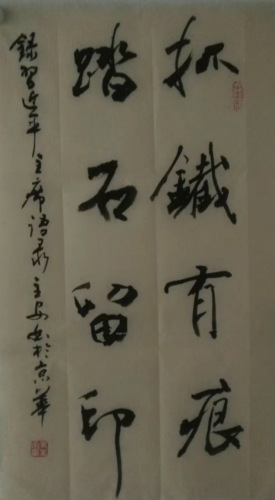 抓鐵有痕
踏石留印
錄習近平主席語录 主安书於京華